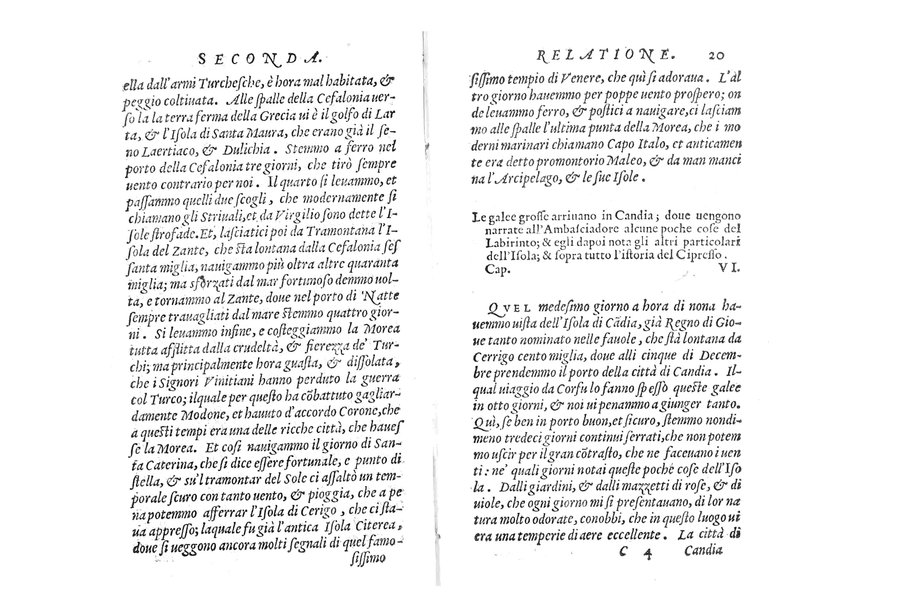 SECONDA.
ella dall'armi Turchesche, è hora mal habitata, &
peggio coltiuata. Alle spalle della Cefalonia uer-
so la la terra ferma della Grecia ui è il golfo di Lar
ta, & l'Isola di Santa Maura, che erano già il se-
no Laertiaco, & Dulichia. Stemmo a ferro nel
porto della Cefalonia tre giorni, che tirò sempre
uento contrario per noi. Il quarto si leuammo, et
passammo quelli due scogli, che modernamente si
chiamano gli Striuali, et da Virgilio sono dette l'I-
sole strofade. Et, lasciatici poi da Tramontana l'I-
sola del Zante, che sta lontana dalla Cefalonia ses
santa miglia, nauigammo più oltra altre quaranta
miglia; ma sforzati dal mar fortunoso demmo uol-
ta, e tornammo al Zante, doue nel porto di Natte
sempre trauagliati dal mare stemmo quattro gior-
ni. Si leuammo infine, e costeggiammo la Morea
tutta afflitta dalla crudeltà, & fierezza de' Tur-
chi; ma principalmente hora guasta, & dissolata,
che i Signori Vinitiani hanno perduto la guerra
col Turco; ilquale per questo ha cõbattuto gagliar-
damente Modone, et hauuto d'accordo Corone, che
a questi tempi era una delle ricche città, che haues
se la Morea. Et cosi nauigammo il giorno di San-
ta Caterina, che si dice essere fortunale, e punto di
stella, & su'l tramontar del Sole ci assaltò un tem-
porale scuro con tanto uento, & pioggia, che a pe
na potemmo afferrar l'Isola di Cerigo, che ci sta-
ua appresso; laquale fu già l'antica Isola Citerea,
doue si ueggono ancora molti segnali di quel famo-
sissimo
RELATIONE. 20
sissimo tempio di Venere, che quì si adoraua. L'al
tro giorno hauemmo per poppe uento prospero; on
de leuammo ferro, & postici a nauigare, ci lasciam
mo alle spalle l'ultima punta della Morea, che i mo
derni marinari chiamano Capo Italo, et anticamen
te era detto promontorio Maleo, & da man manci
na l'Arcipelago, & le sue Isole.
Le galee grosse arriuano in Candia; doue uengono
narrate all'Ambasciadore alcune poche cose del
Labirinto; & egli dapoi nota gli altri particolari
dell'Isola; & sopra tutto l'istoria del Cipresso.
Cap. VI.
QVEL medesimo giorno a hora di nona ha-
uemmo uista dell'Isola di Cãdia, già Regno di Gio-
ue tanto nominato nelle fauole, che stà lontana da
Cerrigo cento miglia, doue alli cinque di Decem-
bre prendemmo il porto della città di Candia. Il-
qual uiaggio da Corfu lo fanno spesso queste galee
in otto giorni, & noi ui penammo a giunger tanto.
Quì, se ben in porto buon, et sicuro, stemmo nondi-
meno tredeci giorni continui serrati, che non potem
mo uscir per il gran cõtrasto, che ne faceuano i uen
ti: ne' quali giorni notai queste poche cose dell'Iso
la. Dalli giardini, & dalli mazzetti di rose, & di
uiole, che ogni giorno mi si presentauano, di lor na
tura molto odorate, conobbi, che in questo luogo ui
era una temperie di aere eccellente. La città di
C 4 Candia